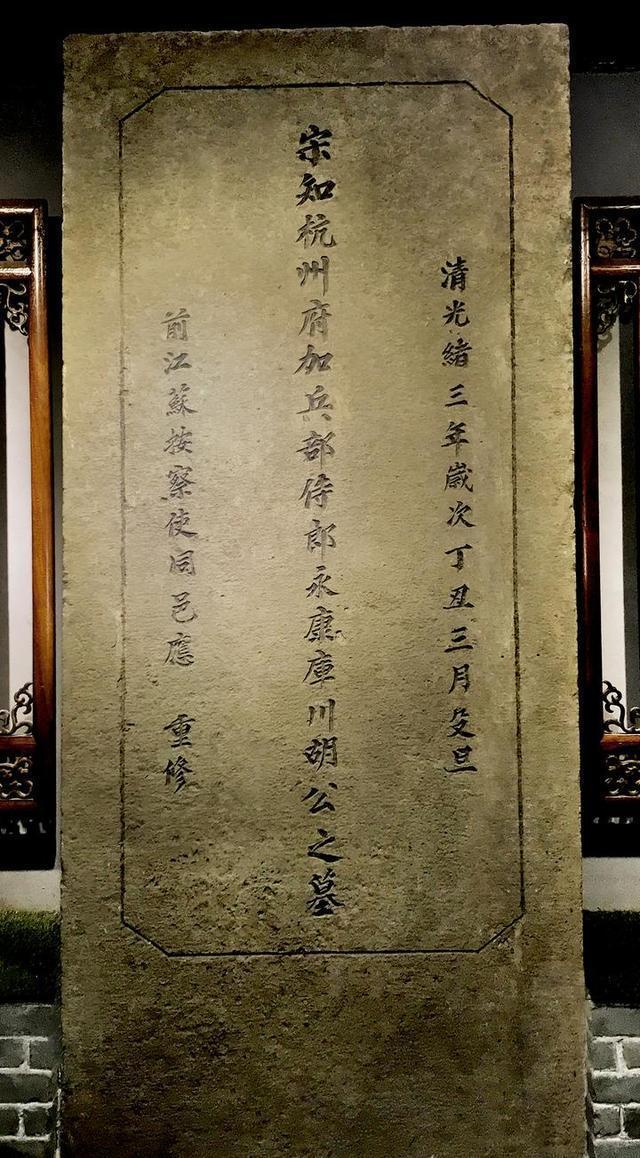 清光緒三年歲次丁丑三月㲉旦
宋知杭州府加兵部侍郎永康庫川胡公之墓
前江蘇按察使同邑應 重修